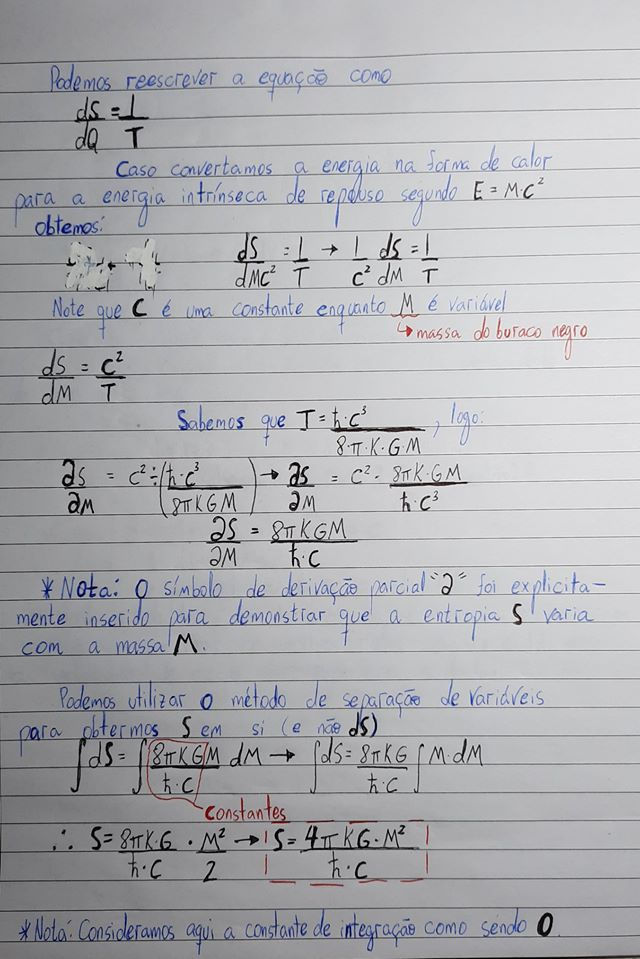 Podemos reescrever a equação como
dS/dQ = 1/T
Caso convertamos a energia na forma de calor
para a energia intrínseca de repouso segundo E = M·C²
obtemos:
dS/dMC² = 1/T → 1/C² dS/dM = 1/T
Note que C é uma constante enquanto M é variável
↳ massa do buraco negro
dS/dM = C²/T
Sabemos que T = ħ·C³/8·π·K·G·M, logo:
∂S/∂M = C² ÷ (ħ·C³/8πKGM) → ∂S/∂M = C² · 8πK·GM/ħ·C³
∂S/∂M = 8πKGM/ħ·C
*Nota: O símbolo de derivação parcial "∂" foi explicita-
mente inserido para demonstrar que a entropia S varia
com a massa M.
Podemos utilizar o método de separação de variáveis
para obtermos S em si (e não dS)
∫dS = ∫8πKGM/ħ·C dM → ∫dS = 8πKG/ħ·C ∫M·dM
Constantes
∴ S = 8πK·G/ħ·C · M²/2 → S = 4πKG·M²/ħ·C
*Nota: Consideramos aqui a constante de integração como sendo 0.